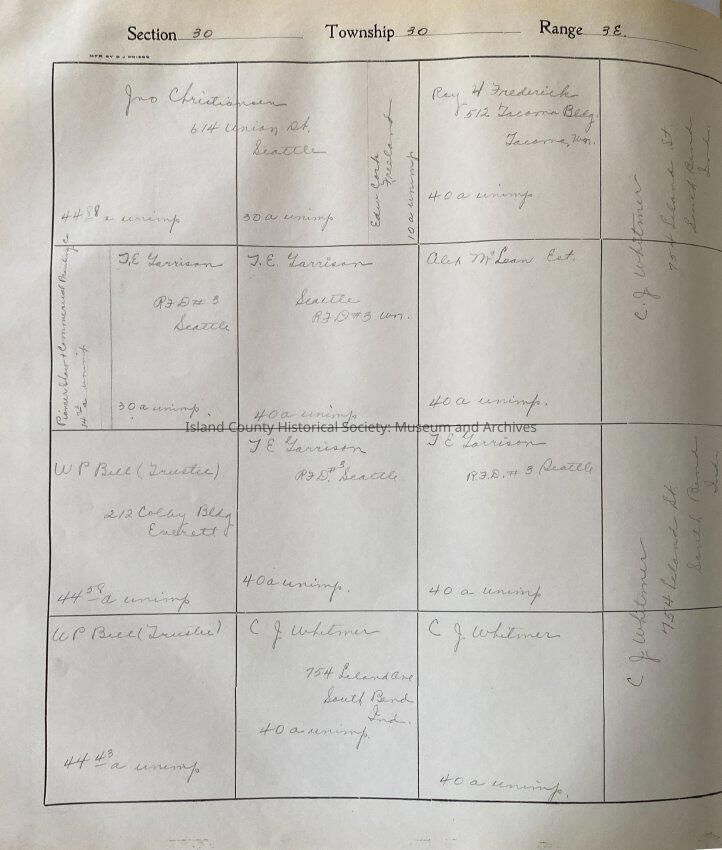 Section 30 Township 30 Range 3E.
MFR BY S J PRIGGS
Jno Christiansen
614 Union St.
Seattle
44 88 a unimp
30 a unimp
Edw Cork
Freeland
10 a unimp
Roy H Frederick
512 Tacoma Bldg.
Tacoma, Wn.
40 a unimp
C. J Whitmer
754 Leland St
South Bend
Ind.
T.E Garrison
R.F.D # 3
Seattle
30 a unimp.
T. E. Garrison
Seattle
R.F.D #3 Wn.
40 a unimp
Alex McLean Est.
40 a unimp.
Island County Historical Society: Museum and Archives
W P Bell (Trustee)
212 Colby Bldg
Everett
44 58 a unimp
T E Garrison
R.F.D. #3 Seattle
40 a unimp.
T E Garrison
R.F.D. # 3 Seattle
40 a unimp
C J Whitmer
754 Leland St.
South Bend
Ind.
W P Bell (Trustee)
44 43 a unimp
C J Whitmer
754 Leland Ave
South Bend
Ind.
40 a unimp.
C J Whitmer
40 a unimp.